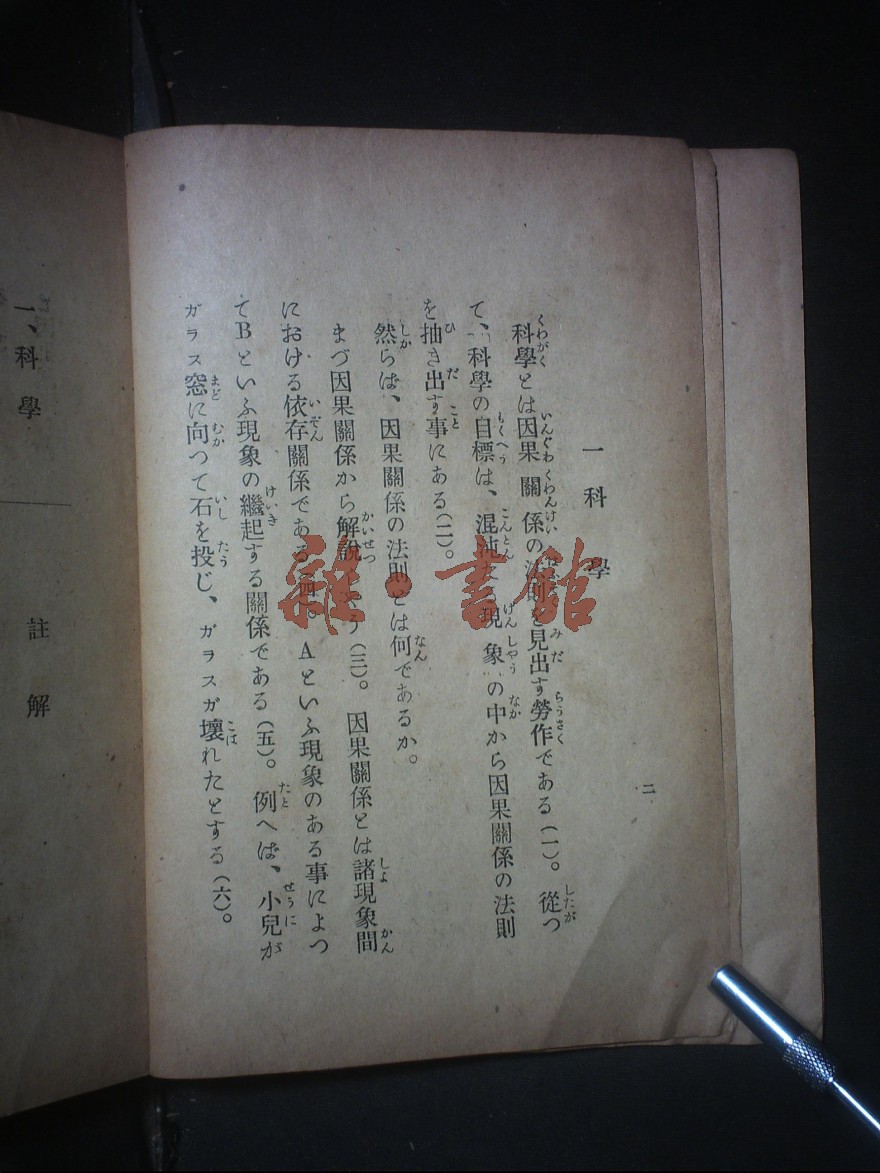 二
一 科 學
科學とは因果關係の法則を見出す勞作である(一)。從つ
て、科學の目標は、混沌たる現象の中から因果關係の法則
を抽き出す事にある(二)。
然らば、因果關係の法則とは何であるか。
まづ因果關係から解說しよう(三)。因果關係とは諸現象間
における依存關係である(四)。Aといふ現象のある事によつ
てBといふ現象の繼起する關係である(五)。例へば、小兒が
ガラス窓に向つて石を投じ、ガラスガ壞れたとする(六)。
一、科學
註解
雜·書館